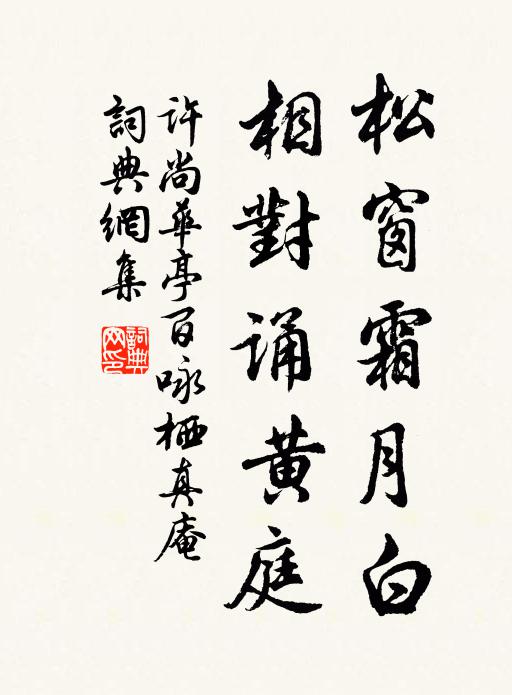 松窗霜月白
相對誦黃庭
許尚華亭百咏栖真庵
詞典網集
詞典網印